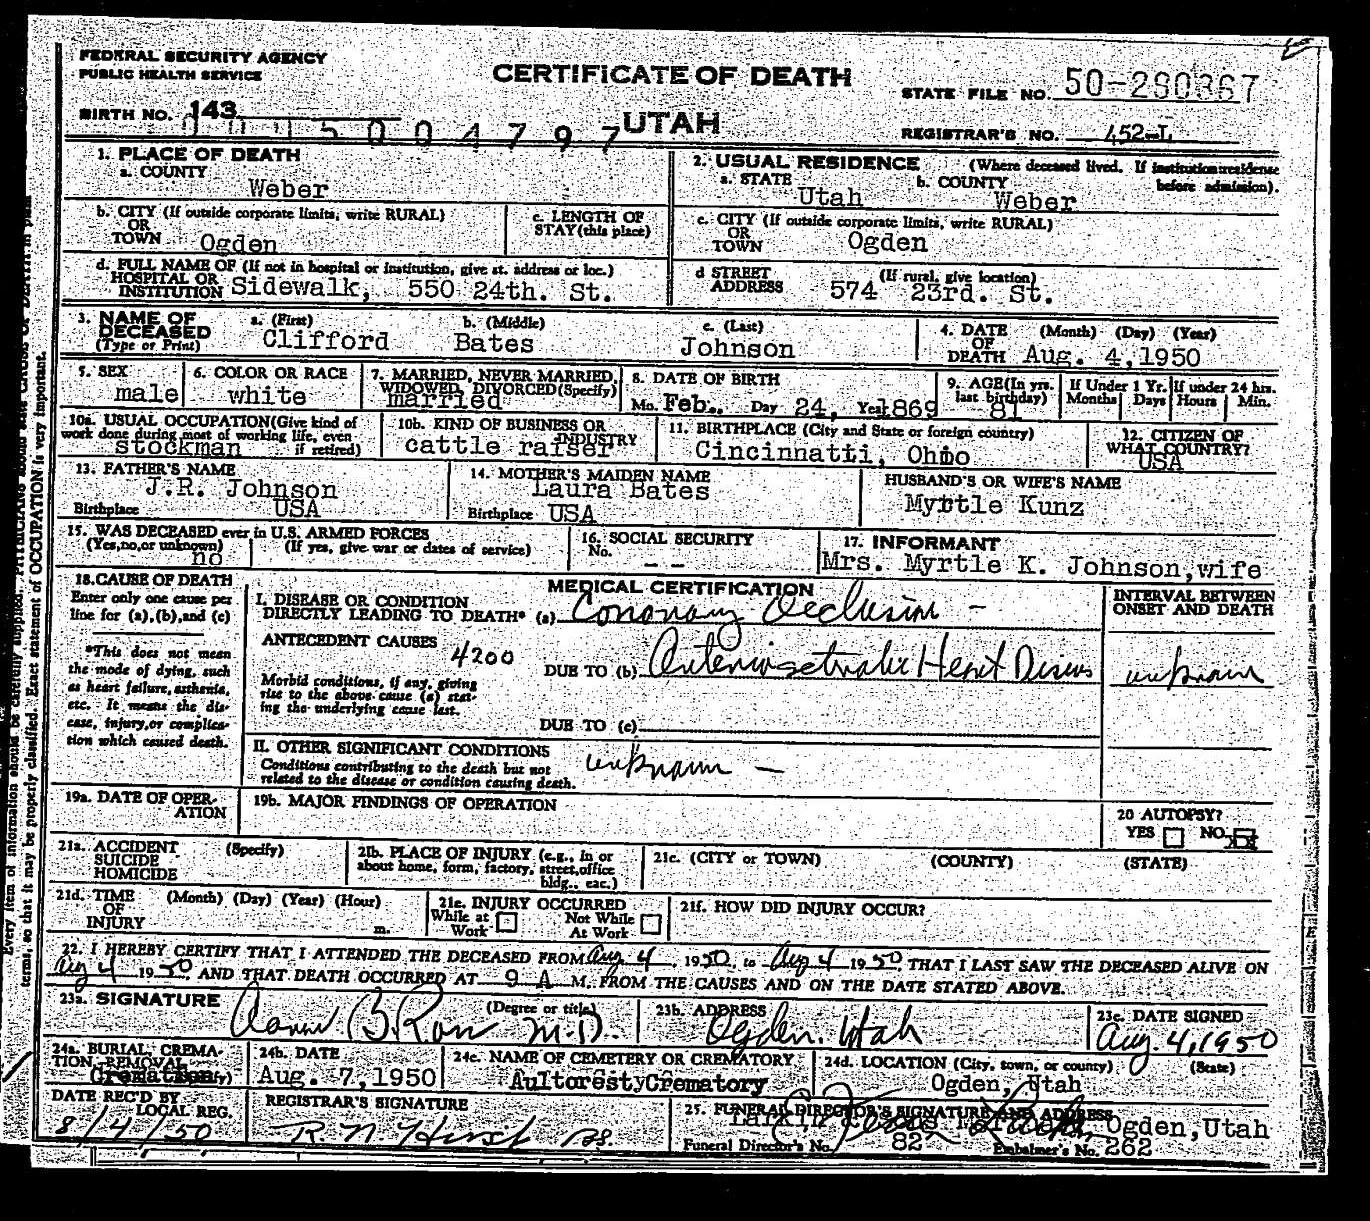 FEDERAL SECURITY AGENCY
PUBLIC HEALTH SERVICE
CERTIFICATE OF DEATH
STATE FILE NO. 50-290367
BIRTH NO. 143
5004797
UTAH
REGISTRAR'S NO. 452-L
1. PLACE OF DEATH
a. COUNTY
Weber
2. USUAL RESIDENCE (Where deceased lived. If institution:residence before admission).
a. STATE Utah b. COUNTY Weber
b. CITY (If outside corporate limits, write RURAL)
OR
TOWN Ogden
c. LENGTH OF
STAY (this place)
c. CITY (If outside corporate limits, write RURAL)
OR
TOWN Ogden
d. FULL NAME OF (If not in hospital or institution, give st. address or loc.)
HOSPITAL OR
INSTITUTION Sidewalk, 550 24th. St.
d STREET (If rural, give location)
ADDRESS 574 23rd. St.
3. NAME OF
DECEASED
(Type or Print)
a. (First) Clifford
b. (Middle) Bates
c. (Last) Johnson
4. DATE (Month) (Day) (Year)
OF
DEATH Aug. 4, 1950
5. SEX
male
6. COLOR OR RACE
white
7. MARRIED, NEVER MARRIED,
WIDOWED, DIVORCED (Specify)
married
8. DATE OF BIRTH
Mo. Feb.. Day 24, Year 1869
9. AGE (In yrs.
last birthday)
81
If Under 1 Yr.
Months Days
If under 24 hrs.
Hours Min.
10a. USUAL OCCUPATION (Give kind of
work done during most of working life, even
if retired)
stockman
10b. KIND OF BUSINESS OR
INDUSTRY
cattle raiser
11. BIRTHPLACE (City and State or foreign country)
Cincinnatti, Ohio
12. CITIZEN OF
WHAT COUNTRY?
USA
13. FATHER'S NAME
J.R. Johnson
Birthplace USA
14. MOTHER'S MAIDEN NAME
Laura Bates
Birthplace USA
HUSBAND'S OR WIFE'S NAME
Myrtle Kunz
15. WAS DECEASED ever in U.S. ARMED FORCES
(Yes, no, or unknown) (If yes, give war or dates of service)
no
16. SOCIAL SECURITY
No.
--
17. INFORMANT
Mrs. Myrtle K. Johnson, wife
18. CAUSE OF DEATH
Enter only one cause per
line for (a), (b), and (c)
*This does not mean
the mode of dying, such
as heart failure, asthenia,
etc. It means the dis-
ease, injury, or complica-
tion which caused death.
MEDICAL CERTIFICATION
INTERVAL BETWEEN
ONSET AND DEATH
I. DISEASE OR CONDITION
DIRECTLY LEADING TO DEATH* (a) Coronary Occlusion -
ANTECEDENT CAUSES
4200
Morbid conditions, if any, giving
rise to the above cause (a) stat-
ing the underlying cause last.
DUE TO (b) Heart unknown
DUE TO (c)
II. OTHER SIGNIFICANT CONDITIONS
Conditions contributing to the death but not
related to the disease or condition causing death.
unknown -
19a. DATE OF OPER-
ATION
19b. MAJOR FINDINGS OF OPERATION
20 AUTOPSY?
YES NO X
21a. ACCIDENT (Specify)
SUICIDE
HOMICIDE
21b. PLACE OF INJURY (e.g., in or
about home, form, factory, street, office
bldg., eac.)
21c. (CITY or TOWN) (COUNTY) (STATE)
21d. TIME (Month) (Day) (Year) (Hour)
OF
INJURY m.
21e. INJURY OCCURRED
While at Work
Not While At Work
21f. HOW DID INJURY OCCUR?
22. I HEREBY CERTIFY THAT I ATTENDED THE DECEASED FROM Aug 4, 1950, to Aug 4 1950, THAT I LAST SAW THE DECEASED ALIVE ON
Aug 4 1950, AND THAT DEATH OCCURRED AT 9 A M., FROM THE CAUSES AND ON THE DATE STATED ABOVE.
23a. SIGNATURE (Degree or title)
M.D.
23b. ADDRESS
Ogden, Utah
23c. DATE SIGNED
Aug. 4, 1950
24a. BURIAL, CREMA-
TION, REMOVAL
Cremation
24b. DATE
Aug. 7, 1950
24c. NAME OF CEMETERY OR CREMATORY
Aultorest Crematory
24d. LOCATION (City, town, or county) (State)
Ogden, Utah
DATE REC'D BY
LOCAL REG.
8/4/50
REGISTRAR'S SIGNATURE
25. FUNERAL DIRECTOR'S SIGNATURE AND ADDRESS
Larkin Ogden, Utah
Funeral Director's No. 82
Embalmer's No. 262